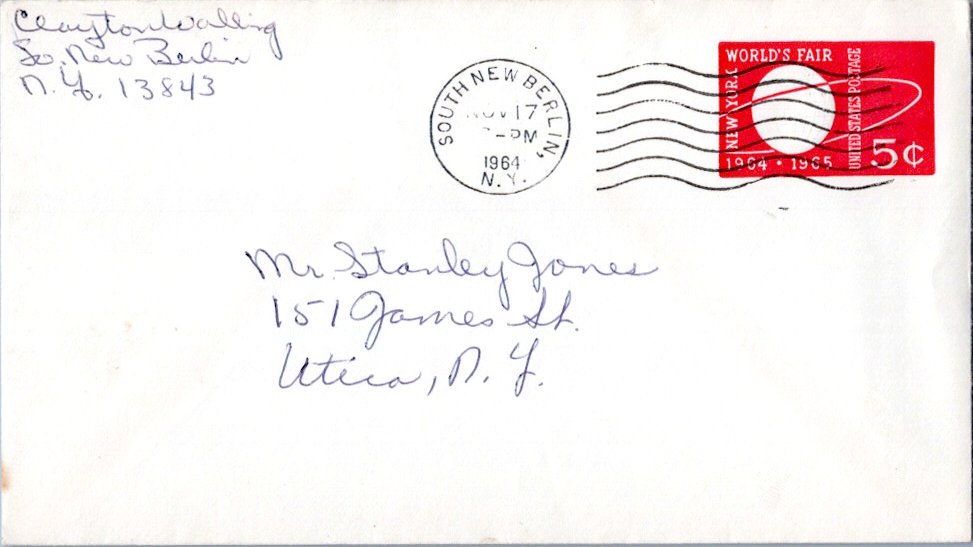 Clayton Walling
So. New Berlin
N.Y. 13843
SOUTH NEW BERLIN,
NOV 17
PM
1964
N.Y.
WORLD'S FAIR
NEW YORK
UNITED STATES POSTAGE
1964 · 1965
5¢
Mr. Stanley Jones
151 James St.
Utica, N.Y.